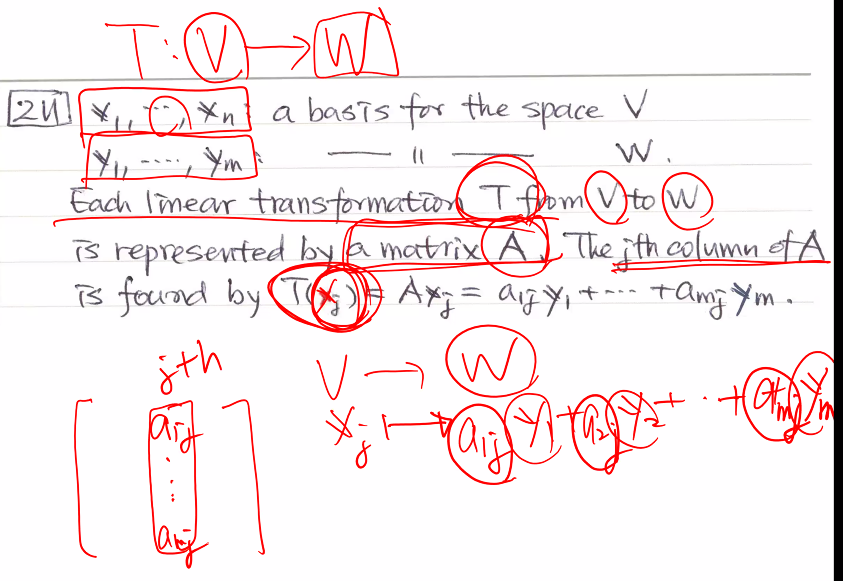 T : V → W
2U x₁, ..., xₙ : a basis for the space V
y₁, ...., yₘ : —— 〃 —— W.
Each linear transformation T from V to W
is represented by a matrix A. The jth column of A
is found by T(xⱼ) = Axⱼ = a₁ⱼy₁ + ... + aₘⱼyₘ.
jth
V → W
[ a₁ⱼ ⋮ aₘⱼ ]
xⱼ ↦ a₁ⱼ y₁ + a₂ⱼ y₂ + ... + aₘⱼ yₘ